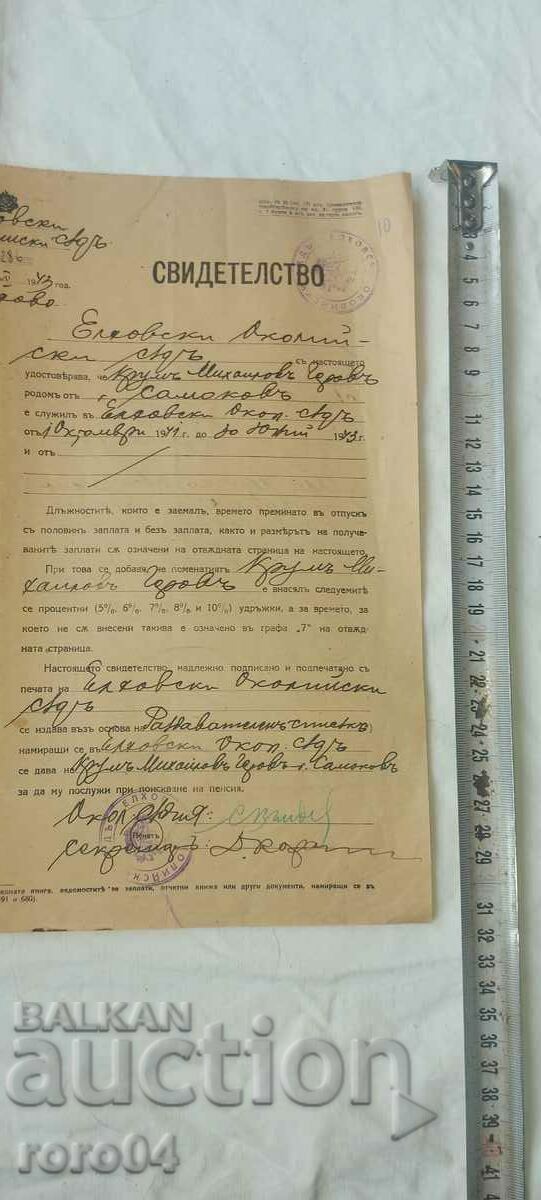 овски
ийски съдъ
286
1943 год.
СВИДЕТЕЛСТВО
10
Елховски Околий-
ски съдъ съ настоящето
удостоверява, че Крумъ Михаиловъ
родомъ отъ г. Самоковъ
е служилъ въ Елховски Окол. съдъ
отъ 1 Октомври 1941 г. до 30 Юний 1943 г.
и отъ
Длъжноститѣ, които е заемалъ, времето преминато въ отпускъ
съ половинъ заплата и безъ заплата, както и размѣрътъ на получа-
ванитѣ заплати сѫ означени на отвѫдната страница на настоящето.
При това се добавя, че поменатиятъ Крумъ Ми-
хаиловъ е внасялъ следуемитѣ
се процентни (5%, 6%, 7%, 8% и 10%) удръжки, а за времето, за
което не сѫ внесени такива е означено въ графа "7" на отвѫд-
ната страница.
Настоящето свидетелство, надлежно подписано и подпечатано съ
печата на Елховски Околийски
съдъ
се издава възъ основа на Раздавателенъ списъкъ)
намиращи се въ Елховски Окол. съдъ
се дава на Крумъ Михаиловъ г. Самоковъ
за да му послужи при поискване на пенсия.
Окол. Съдия:
Печатъ
Секретарь:
ведомоститѣ за заплати, отчетни книжа или други документи, намиращи се въ
91 и 680).
3
4
6
7
8
9
11
12
13
14
15
16
17
18
19
21
22
23
24
25
26
27
28
29
31
32
33
34
35
36
37
38
39
41
BALKAN
auction
roro04